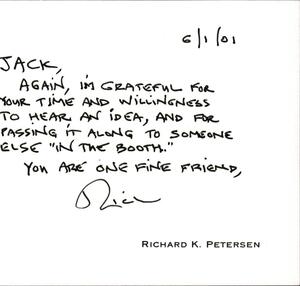 6/1/01
JACK,
AGAIN, I'M GRATEFUL FOR
YOUR TIME AND WILLINGNESS
TO HEAR AN IDEA, AND FOR
PASSING IT ALONG TO SOMEONE
ELSE "IN THE BOOTH."
YOU ARE ONE FINE FRIEND,
Rick
RICHARD K. PETERSEN